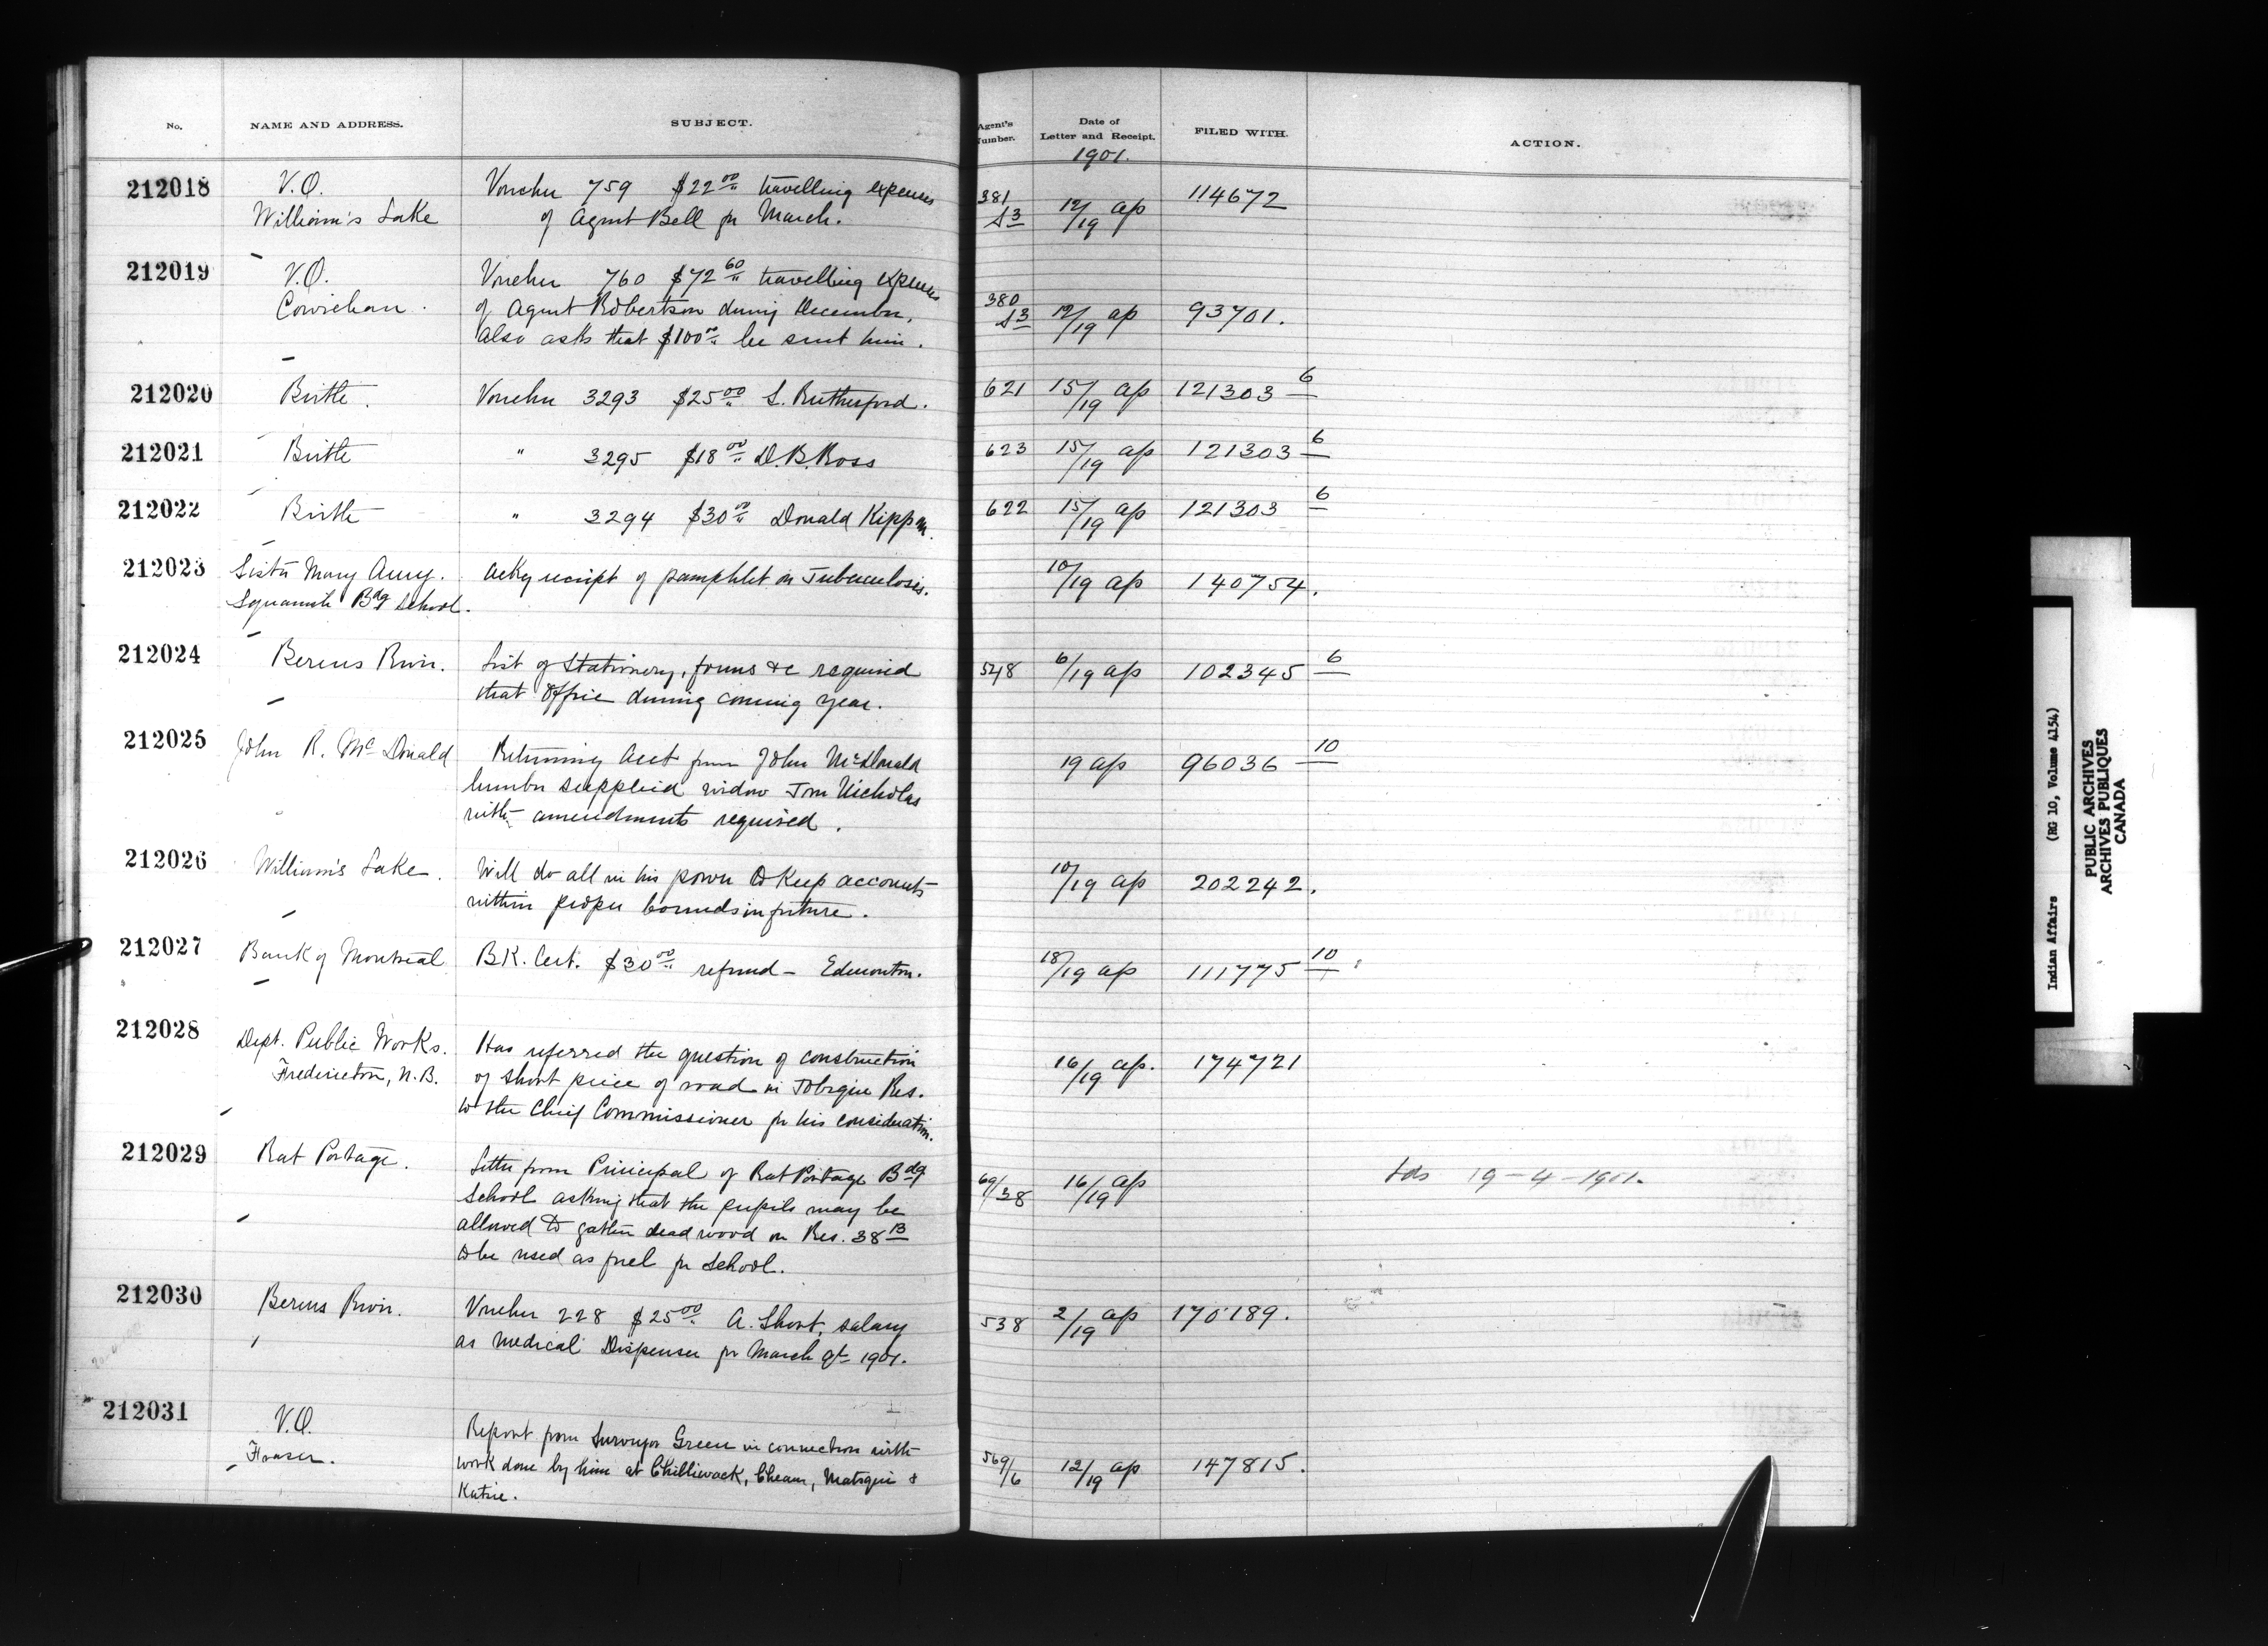 No. NAME AND ADDRESS. SUBJECT. Agent's Number. Date of Letter and Receipt. FILED WITH. ACTION.
1901.
212018 V.O. Voucher 759 $22.00 travelling expenses 381 12/19 ap 114672
William's Lake of Agent Bell for March.
212019 V.O. Voucher 760 $72.60 travelling expenses 380
Cowichan. of Agent Robertson during December, 12/19 ap 93701.
Also asks that $100.00 be sent him.
212020 Birtle. Voucher 3293 $25.00 S. Rutherford. 621 15/19 ap 121303 6
212021 Birtle " 3295 $18.00 D.B. Ross 623 15/19 ap 121303 6
212022 Birtle " 3294 $30.00 Donald 622 15/19 ap 121303 6
212023 Sister Mary Amy. Ackg receipt of pamphlet on Tuberculosis. 10/19 ap 140754.
Squamish Bdg School.
212024 Berens River. List of Stationery, forms &c required 548 6/19 ap 102345 6
that Office during coming year.
212025 John R. McDonald Returning acct from John McDonald 19 ap 96036 10
lumber supplied widow Tom Nicholas
with amendments required.
212026 William's Lake. Will do all in his power to keep accounts 10/19 ap 202242.
within proper bounds in future.
212027 Bank of Montreal BK. Cert. $30.00 refund - Edmonton. 18/19 ap 111775 10
212028 Dept. Public Works. Has referred the question of construction
Fredericton, N.B. of short piece of road in Tobique Res. 16/19 ap. 174721
to the Chief Commissioner for his consideration.
212029 Rat Portage. Letter from Principal of Rat Portage Bdg 69/38 16/19 ap 19-4-1901.
School asking that the pupils may be
allowed to gather dead wood on Res. 38B
to be used as fuel for School.
212030 Berens River. Voucher 228 $25.00 A. Short, salary 538 2/19 ap 170189.
as Medical Dispenser for March qt 1901.
212031 V.O. Report from Surveyor Green in connection with
Fraser. work done by him at Chilliwack, Cheam, Matsqui & 569/6 12/19 ap 147815.
Katsie.
Indian Affairs (RG 10, Volume 4154)
PUBLIC ARCHIVES
ARCHIVES PUBLIQUES
CANADA